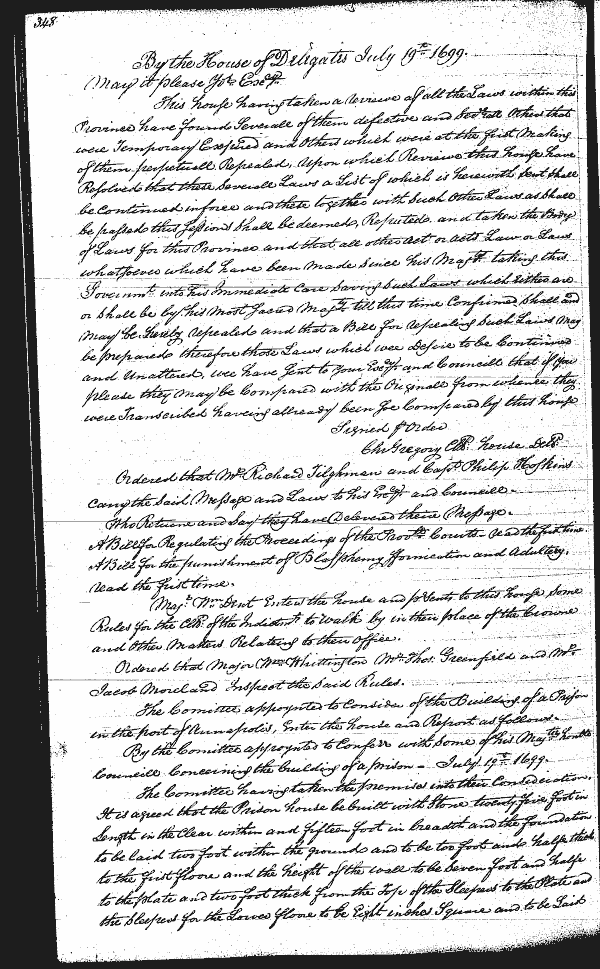 348
By the House of Delegates July 19th 1699.
May it please Yor Excy
This house having taken a Review of all the Laws within this
Province have found Severall of them defective and Severall Others that
were Temporary Expired and Others which were at the first Making
of them perpetuall Repealed, upon which Review this house have
Resolved that these Severall Laws a List of which is herewith Sent Shall
be Continued inforce and these together with Such Other Laws as Shall
be passed this Session Shall be deemed, Reputed and taken the Body
of Laws for this Province and that all other Act or Acts Law or Laws
whatsoever which have been made Since his Majty taking this
Governmt into his Immediate Care Saving Such Laws which Either are
or Shall be by his Most Sacred Majty till this time Confirmed Shall and
may be hereby repealed and that a Bill for repealing Such Laws may
be prepared therefore those Laws which wee Desire to be Continued
and Unaltered, wee have Sent to your Excy and Councill that if You
please they may be Compared with the Originall from whence they
were Transcribed haveing allready been Compared by this house
Signed p Order
Chr Gregory Clk. house Del.
Ordered that Mr Richard Tilghman and Capt Philip Hoskins
carry the Said Message and Laws to his Excy and Councill.
Who Returne and Say they have Delivered their Message.
A Bill for Regulating the Proceedings of the Provll Courts read the first time.
A Bill for the punishment of Blasphemy fornication and Adultery.
read the first time.
Majr Wm Dent Enters the house and prsents to this house Some
Rules for the Clk. of the Indictmts to walk by in their place of the Crowne
and Other Matters Relating to their office.
Ordered that Major Wm Whittington Mr Thos. Greenfield and Mr
Jacob Moreland Inspect the Said Rules.
The Comittee appoynted to Consider of the Building of a Prison
in the port of Annapolis, Enter the house and Report as follows.
By the Comittee appoynted to Conferr with Some of his Majtys honble
Councill Concerning the building of a prison - July 19th 1699.
The Comittee having taken the premises into their Consideration.
It is agreed that the Prison house be built with Stone twenty five foot in
Length in the Clear within and fifteen foot in breadth and the foundation
to be laid two foot within the ground and to be two foot and halfe thick
to the first floore and the height of the wall to be Seven foot and halfe
to the plate and two foot thick from the Top of the Sleepers to the Plate and
the Sleepers for the Lower floore to be Eight inches Square and to be Laid